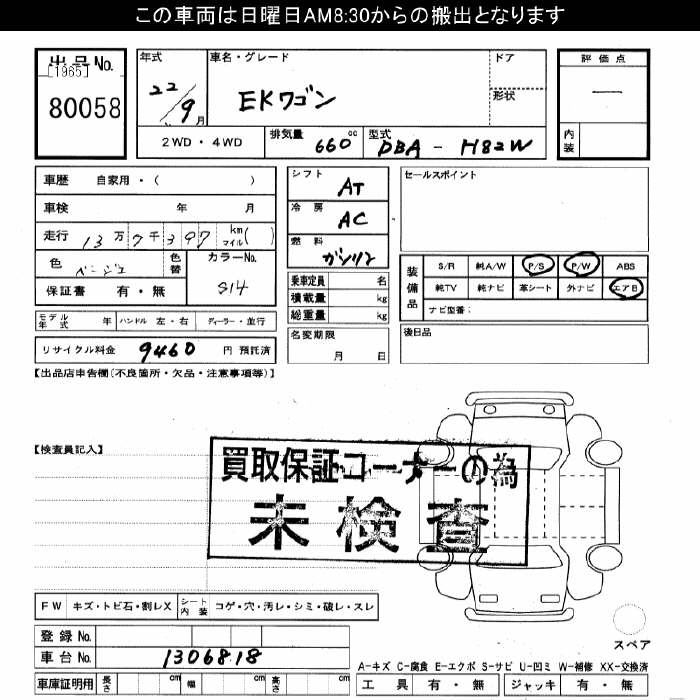 この車両は日曜日AM8:30からの搬出となります
出品No.
[1965]
80058
年式
22/9月
車名・グレード
EKワゴン
ドア
形状
評価点
—
内装
2WD・4WD
排気量 660cc
型式 DBA-H82W
車歴 自家用・( )
車検 年 月
走行 13万7千397 km マイル( )
色 ベージュ 色替
カラーNo. S14
保証書 有・無
シフト AT
冷房 AC
燃料 ガソリン
乗車定員 名
積載量 kg
総重量 kg
セールスポイント
装備品
S/R 純A/W P/S P/W ABS
純TV 純ナビ 革シート 外ナビ エアB
ナビ型番:
モデル年式 年 ハンドル 左・右 ディーラー・並行
名変期限 月 日
後日品
リサイクル料金 9460 円 預託済
【出品店申告欄(不良箇所・欠品・注意事項等)】
【検査員記入】
買取保証コーナーの為
未検査
FW キズ・トビ石・割レX シート内装 コゲ・穴・汚レ・シミ・破レ・スレ
スペア
登録No.
車台No. 1306818
A-キズ C-腐食 E-エクボ S-サビ U-凹ミ W-補修 XX-交換済
車庫証明用 長さ cm 幅 cm 高さ cm
工具 有・無 ジャッキ 有・無